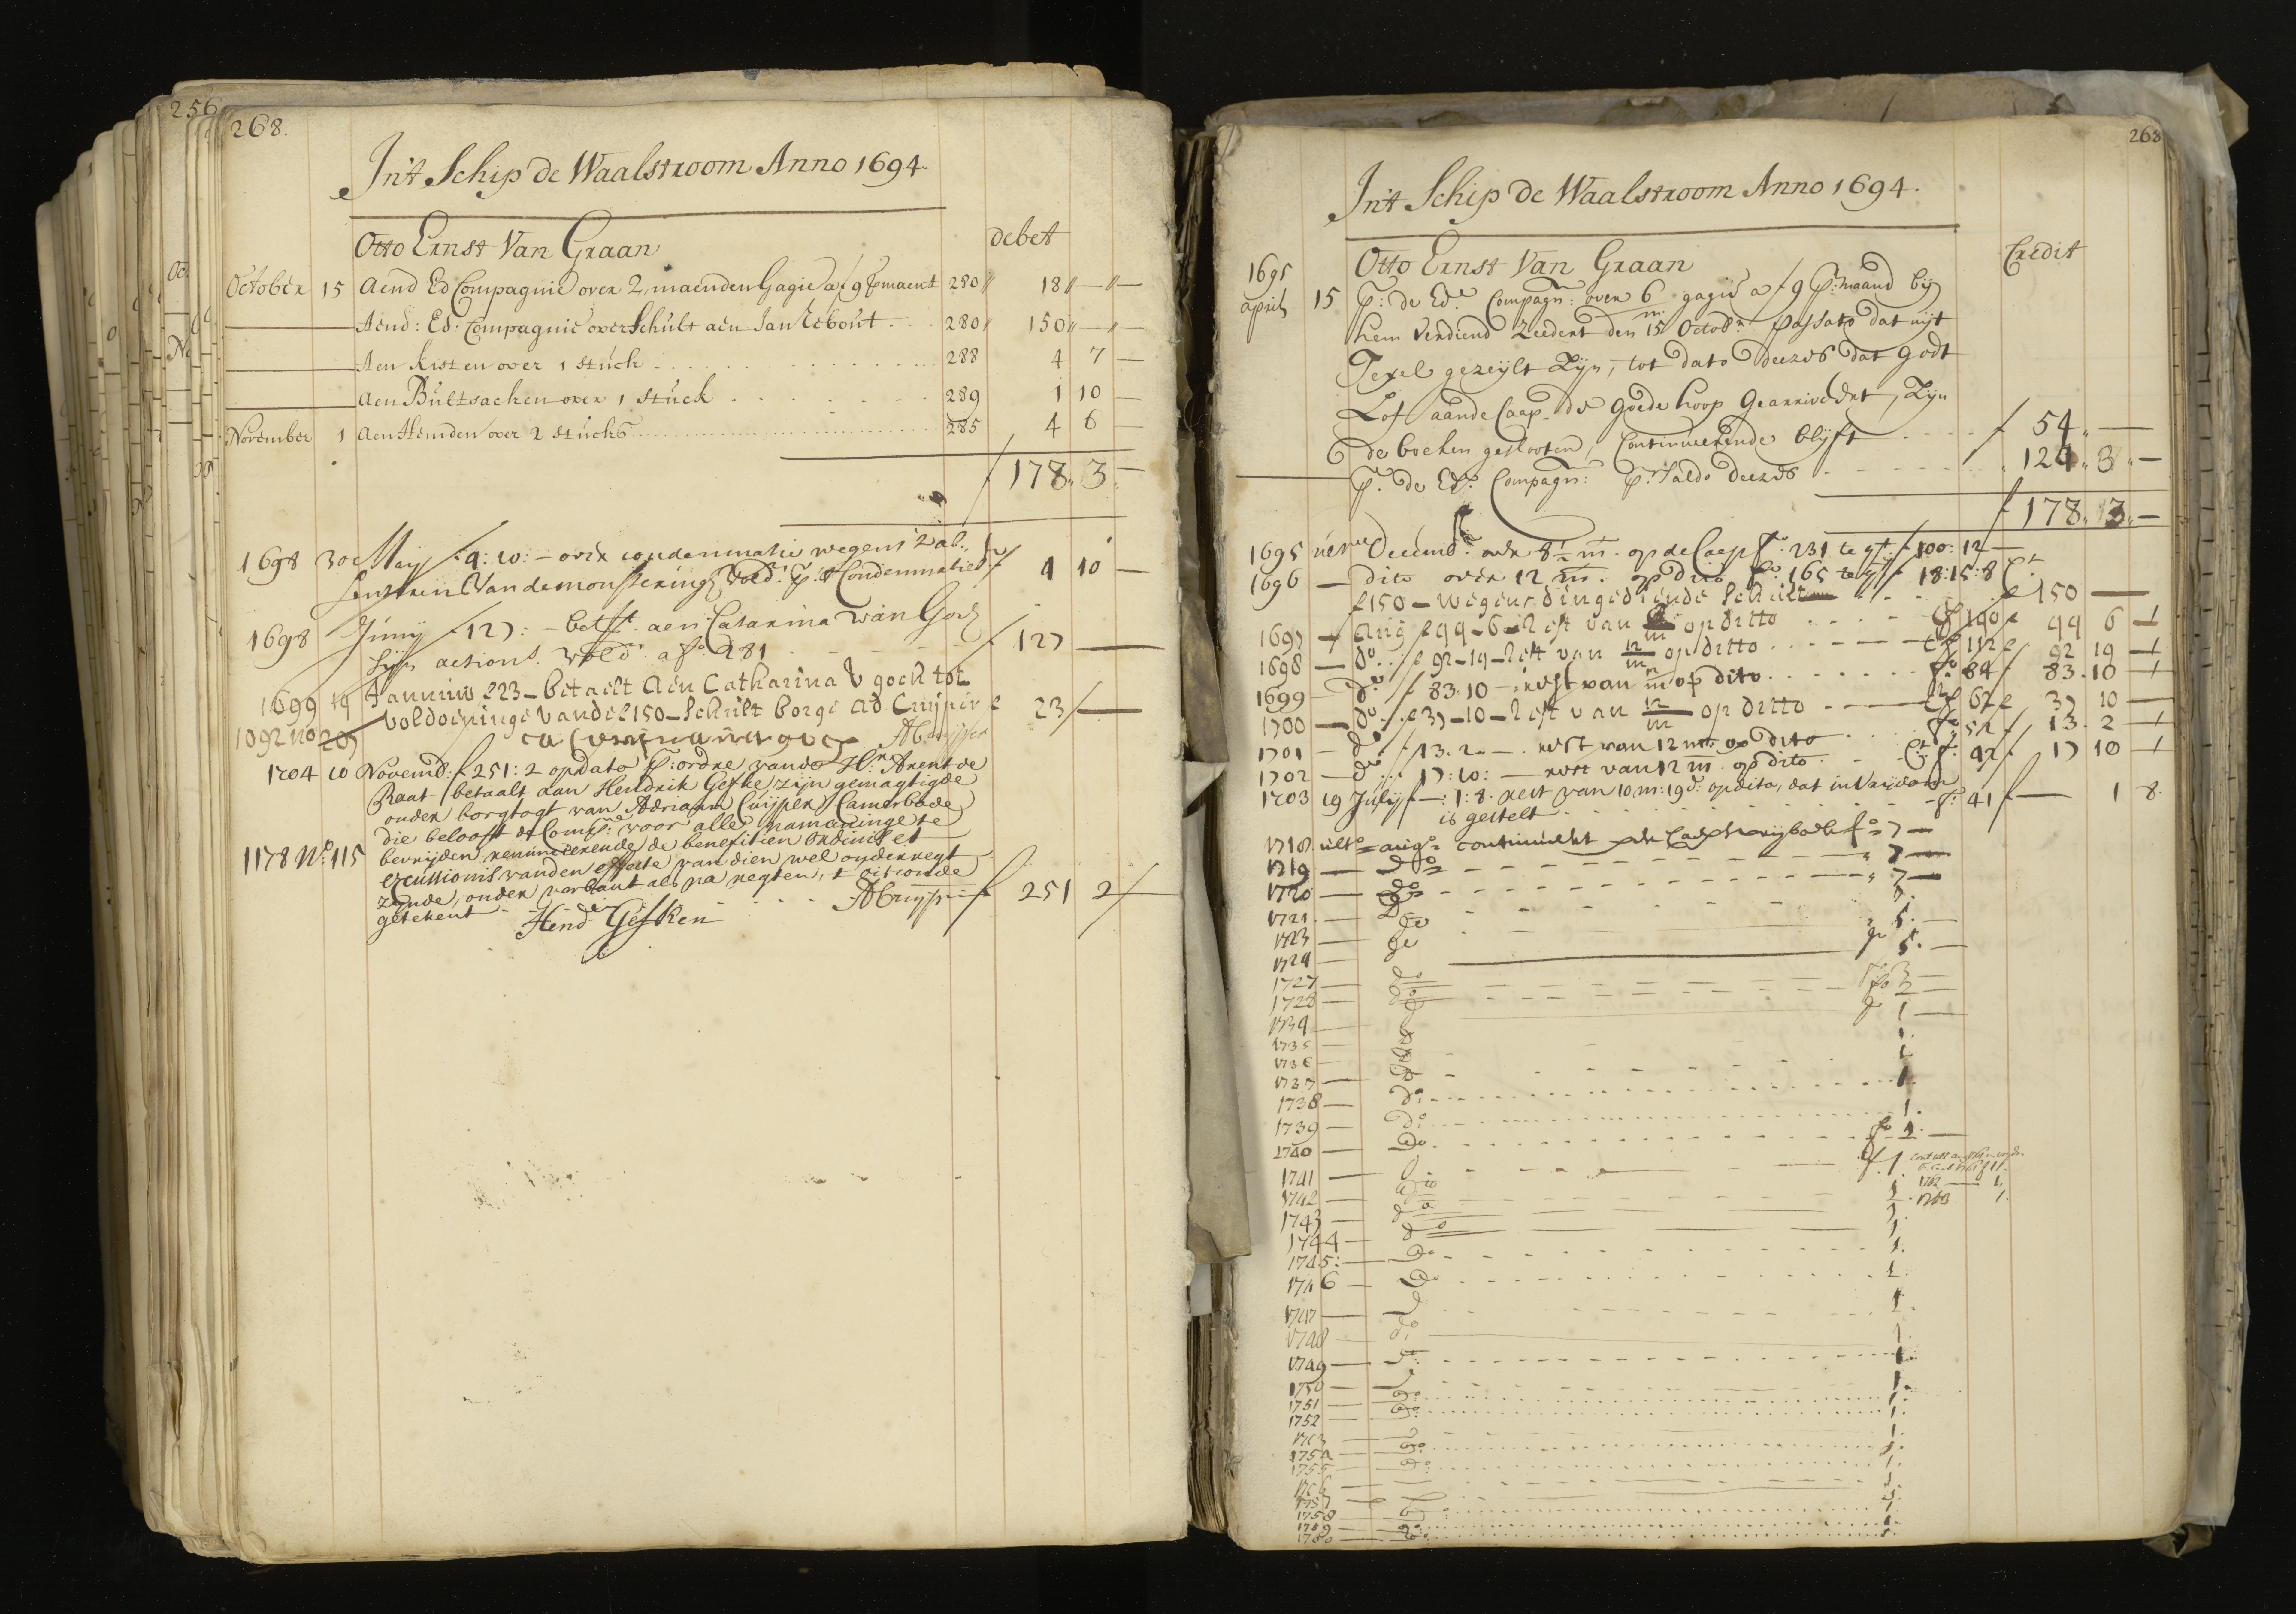 256
268.
Jn't Schip de Waalstroom Anno 1694.
Otto Ernst Van Graan debet
October 15 Aend Ed Compagnie over 2, maenden Gagie a f 9 p maent 280 18
Aend: Ed: Compagnie over Schult aen Jan Lebout 280 150
Aen Kisten over 1 stuck 288 4 7 —
Aen Bultsacken over 1 stuck 289 1 10 —
November 1 Aen Hemden over 2 stucks 285 4 6 —
f 178 3 —
1698 30e Maij f 4:10:— over condemnatie wegens
van de monstering f 4 10 —
1698 Junij f 127:— bet aen Catarina van Goch
Sijn actions. a fo 281 f 127 —
1699 19 Jannuw f 23— betaelt Aen Catharina V goch tot
voldoeninge vande f 150— schult borge Ad. Cuijper f 23 —
1092 no 205
1704 10 Novemb: f 251:2 op dato p:r ordre vande Hrn Arent de
Raat betaalt aan Hendrik Gefke, zijn gemagtigde
onder borgtogt van Adriaan Cuijper Camerbode
die belooft de Comp: voor alle namaninge te
1178 No 115 bevrijden renuncierende de beneficien ordinis et
excussionis vanden effecte van dien wel onderregt
zijnde, onder verbant als na regten, t' oirconde
getekent ACuijper f 251 2 —
Hend Gefken
268
Jn't Schip de Waalstroom Anno 1694.
Otto Ernst Van Graan Credit
1695 april 15 P:r de Ede Compagn: over 6 m gagie a f 9 p:r maand bij
hem verdiend zeedert den 15 Octobr passato dat uijt
Texel gezeijlt Zijn, tot dato deezes dat godt
Lof aande Caap de Goede hoop gearriveert, Zijn
de boeken geslooten, Continueerende blijft f 54 —
P:r de Ed: Compagn: p:r Saldo deezes 124 3 —
f 178 3 —
1695 Decemb: over 8½ m. op de Caep fo 231 te gt f 100:12 —
1696 — dito over 12 m. op dito fo 165 te gt f 18:15:8
f 150 — wegens dingediende Schult f 150 —
1697 — Aug f 99-6- Rest van m op ditto 140 f 99 6 —
1698 — do f 92-19- Rest van 12 m op ditto 112 f 92 19 —
1699 — do f 83.10 — rest van 12 m op dito fo 84 f 83 10 —
1700 — do f 37-10- Rest van 12 m op ditto 67 f 37 10 —
1701 — do f 13.2.— rest van 12 m op dito fo 52 f 13 2 —
1702 — do 17:10:— rest van 12 m op dito fo 42 f 17 10 —
1703 19 Julij f —:1:8. rest van 10 m:19 d: op dito, dat in Vrijdom
is gestelt fo 41 f — 1 8.
1718 ulto augo continueert fo 7 —
1719 — do 7 —
1720 — do 7 —
1721 — Do
1723 — do 5. —
1724 — do 5. —
1727 — do fo 3 —
1728 — do fo 2 —
1734 — 1 —
1735 1.
1736 1
1737 — do 1.
1738 — do 1.
1739 — Do 1.
1740 — Do fo 1. —
1741 — 1.
1742 — do 1.
1743 — do 1.
1744 — do 1.
1745: — Do 1.
1746 — Do 1.
1747 — 1.
1748 — do 1.
1749 — do 1.
1750 — 1.
1751 — do 1.
1752 — do 1.
1753 — 1.
1754 — do 1.
1755 — do 1.
1756 — 1.
1757 — 1.
1758 — do 1.
1759 — do 1.
1760 — do 1.
1762 — 1,
1763 1.